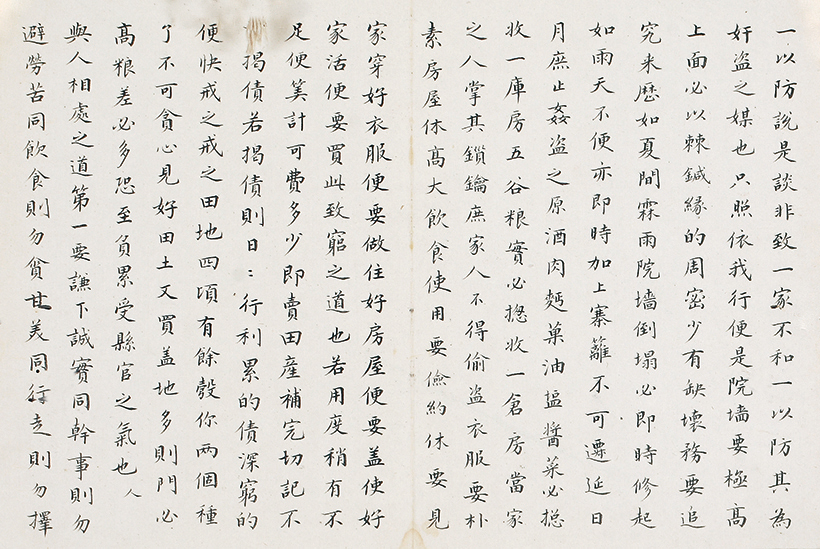 一以防說是談非致一家不和一以防其為
奸盜之媒也只照依我行便是院墻要極高
上面必以棘鍼緣的周密少有缺壞務要追
究来歷如夏間霖雨院墻倒塌必即時修起
如雨天不便亦即時加上寨籬不可遷延日
月庶止姦盜之原酒肉麪菓油醖醬菜必揔
收一庫房五谷粮實必揔收一倉房當家
之人掌其鎖鑰庶家人不得偷盜衣服要朴
素房屋休高大飲食使用要儉約休要見
家穿好衣服便要做住好房屋便要蓋使好
家活便要買此致窮之道也若用度稍有不
足便筭計可費多少即賣田產補完切記不
揭債若揭債則日：行利累的債深窮的
便快戒之戒之田地四頃有餘彀你两個種
了不可貪心見好田土又買盖地多則門必
高粮差必多恐至負累受縣官之氣也人
與人相處之道第一要謙下誠實同幹事則勿
避勞苦同飲食則勿貪甘美同行走則勿擇